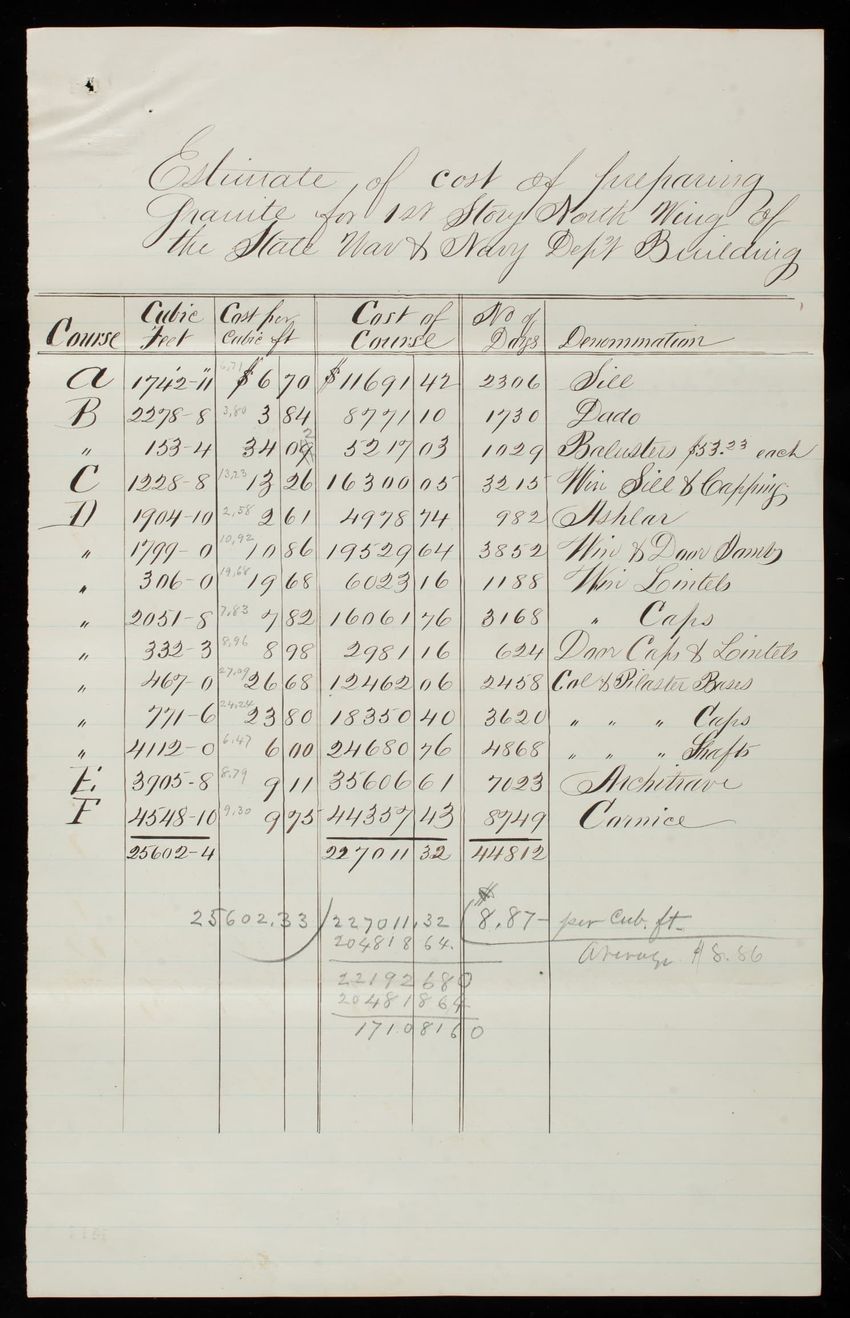 Estimate of cost of preparing
Granite for 1st Story North Wing of
the State War & Navy Dep't Building
Course Cubic Feet Cost per Cubic ft Cost of Course No of Days Denomination
A 1742-11 6,71 $6 70 $11691 42 2306 Sill
B 2278-8 3,80 3 84 8771 10 1730 Dado
" 153-4 34 02 5217 03 1029 Balusters $53.23 each
C 1228-8 13,23 13 26 16300 05 3215 Win Sill & Capping
D 1904-10 2,58 2 61 4978 74 982 Ashlar
" 1799-0 10,92 10 86 19529 64 3852 Win & Door Jambs
" 306-0 19,68 19 68 6023 16 1188 Win Lintels
" 2051-8 7,83 7 82 16061 76 3168 " Caps
" 332-3 8,96 8 98 2981 16 624 Door Caps & Lintels
" 467-0 27,09 26 68 12462 06 2458 Col & Pilaster Bases
" 771-6 24,24 23 80 18350 40 3620 " " " Caps
" 4112-0 6,47 6 00 24680 76 4868 " " " Shafts
E 3905-8 8,79 9 11 35606 61 7023 Architrave
F 4548-10 9,30 9 75 44357 43 8749 Cornice
25602-4 227011 32 44812
25602.33 ) 227011,32 ( 8.87- per Cub. ft.
204818 64. Average $8.86
2219268 0
2048186 4
171.0816 0